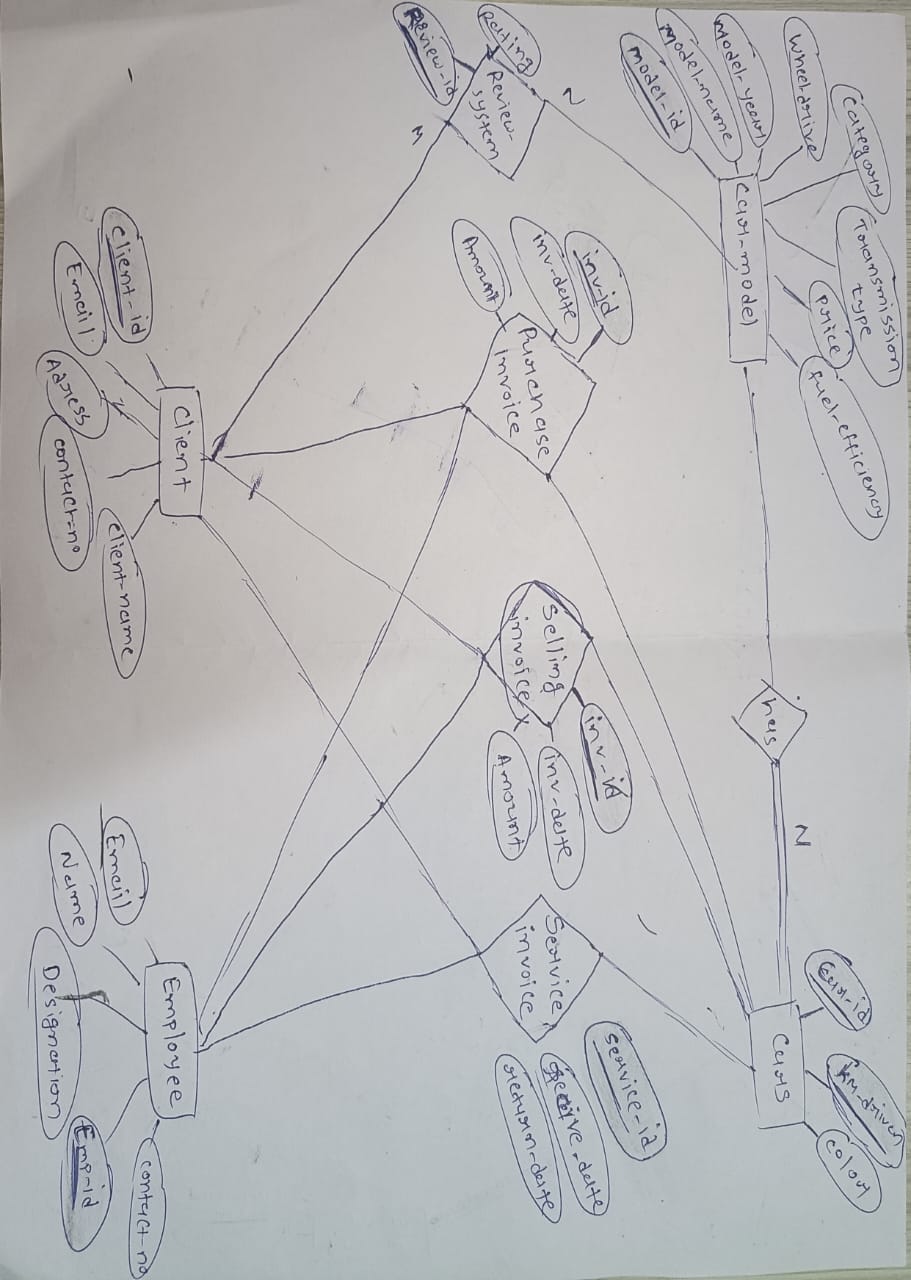 Category
Transmission
type
Price
fuel-efficiency
Wheel drive
Model-year
Model-name
model-id
Car-model
has
N
Car-id
km-driven
colour
Cars
N
Rating
Review-
system
Review-id
M
inv-id
inv-date
Amount
Purchase
Invoice
Selling
invoice
inv-id
inv-date
Amount
Service
invoice
service-id
service-date
return-date
Client
client-id
Email
Adress
contact-no
client-name
Employee
Email
Name
Designation
Emp-id
contact-no